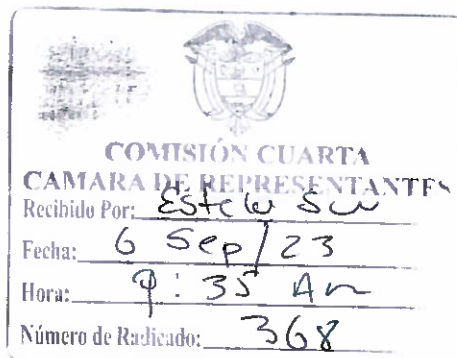 COMISIÓN CUARTA
CAMARA DE REPRESENTANTES
Recibido Por: Estela
Fecha: 6 Sep/23
Hora: 9:35 Am
Número de Radicado: 368